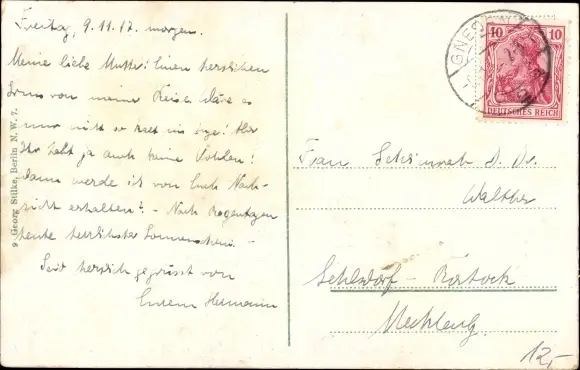 Freitag, 9.11.17. morgen.
Meine liebe Mutter! Einen herzlichen
von meiner Reise. Wäre es
nur nicht so kalt
Ihr habt ja auch keine Kohlen!
Wann werde ich von Euch Nach-
richt erhalten? – Nach Regentagen
heute herrlichster Sonnenschein. –
Seid herzlich gegrüsst von
Eurem Hermann
9 Georg Stilke, Berlin N.W. 7.
GNES
10 10
DEUTSCHES REICH
Frau
Walther
Gehlsdorf - Rostock
Mecklenbg.
12,-